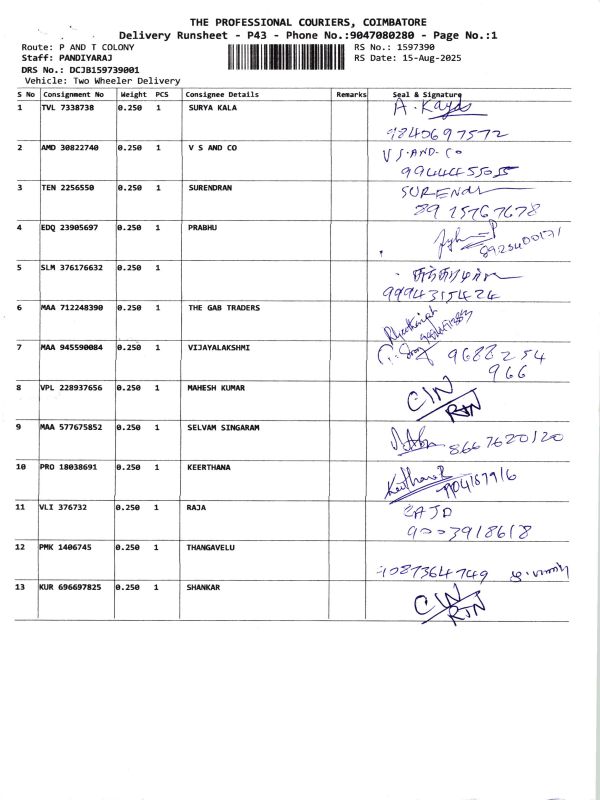 THE PROFESSIONAL COURIERS, COIMBATORE
Delivery Runsheet - P43 - Phone No.:9047080280 - Page No.:1
Route: P AND T COLONY RS No.: 1597390
Staff: PANDIYARAJ RS Date: 15-Aug-2025
DRS No.: DCJB159739001
Vehicle: Two Wheeler Delivery
S No Consignment No Weight PCS Consignee Details Remarks Seal & Signature
1 TVL 7338738 0.250 1 SURYA KALA A. Kaya
9840697572
2 AMD 30822740 0.250 1 V S AND CO V S. AND. Co
9944455055
3 TEN 2256550 0.250 1 SURENDRAN SURENdr
8915767678
4 EDQ 23905697 0.250 1 PRABHU
8925400171
5 SLM 376176632 0.250 1
9994315424
6 MAA 712248390 0.250 1 THE GAB TRADERS
7 MAA 945590084 0.250 1 VIJAYALAKSHMI 9688254
966
8 VPL 228937656 0.250 1 MAHESH KUMAR C/N
RTN
9 MAA 577675852 0.250 1 SELVAM SINGARAM 8667620120
10 PRO 18038691 0.250 1 KEERTHANA Keerthana
11 VLI 376732 0.250 1 RAJA RAJD
9003918618
12 PMK 1406745 0.250 1 THANGAVELU
13 KUR 696697825 0.250 1 SHANKAR C/N
RTN